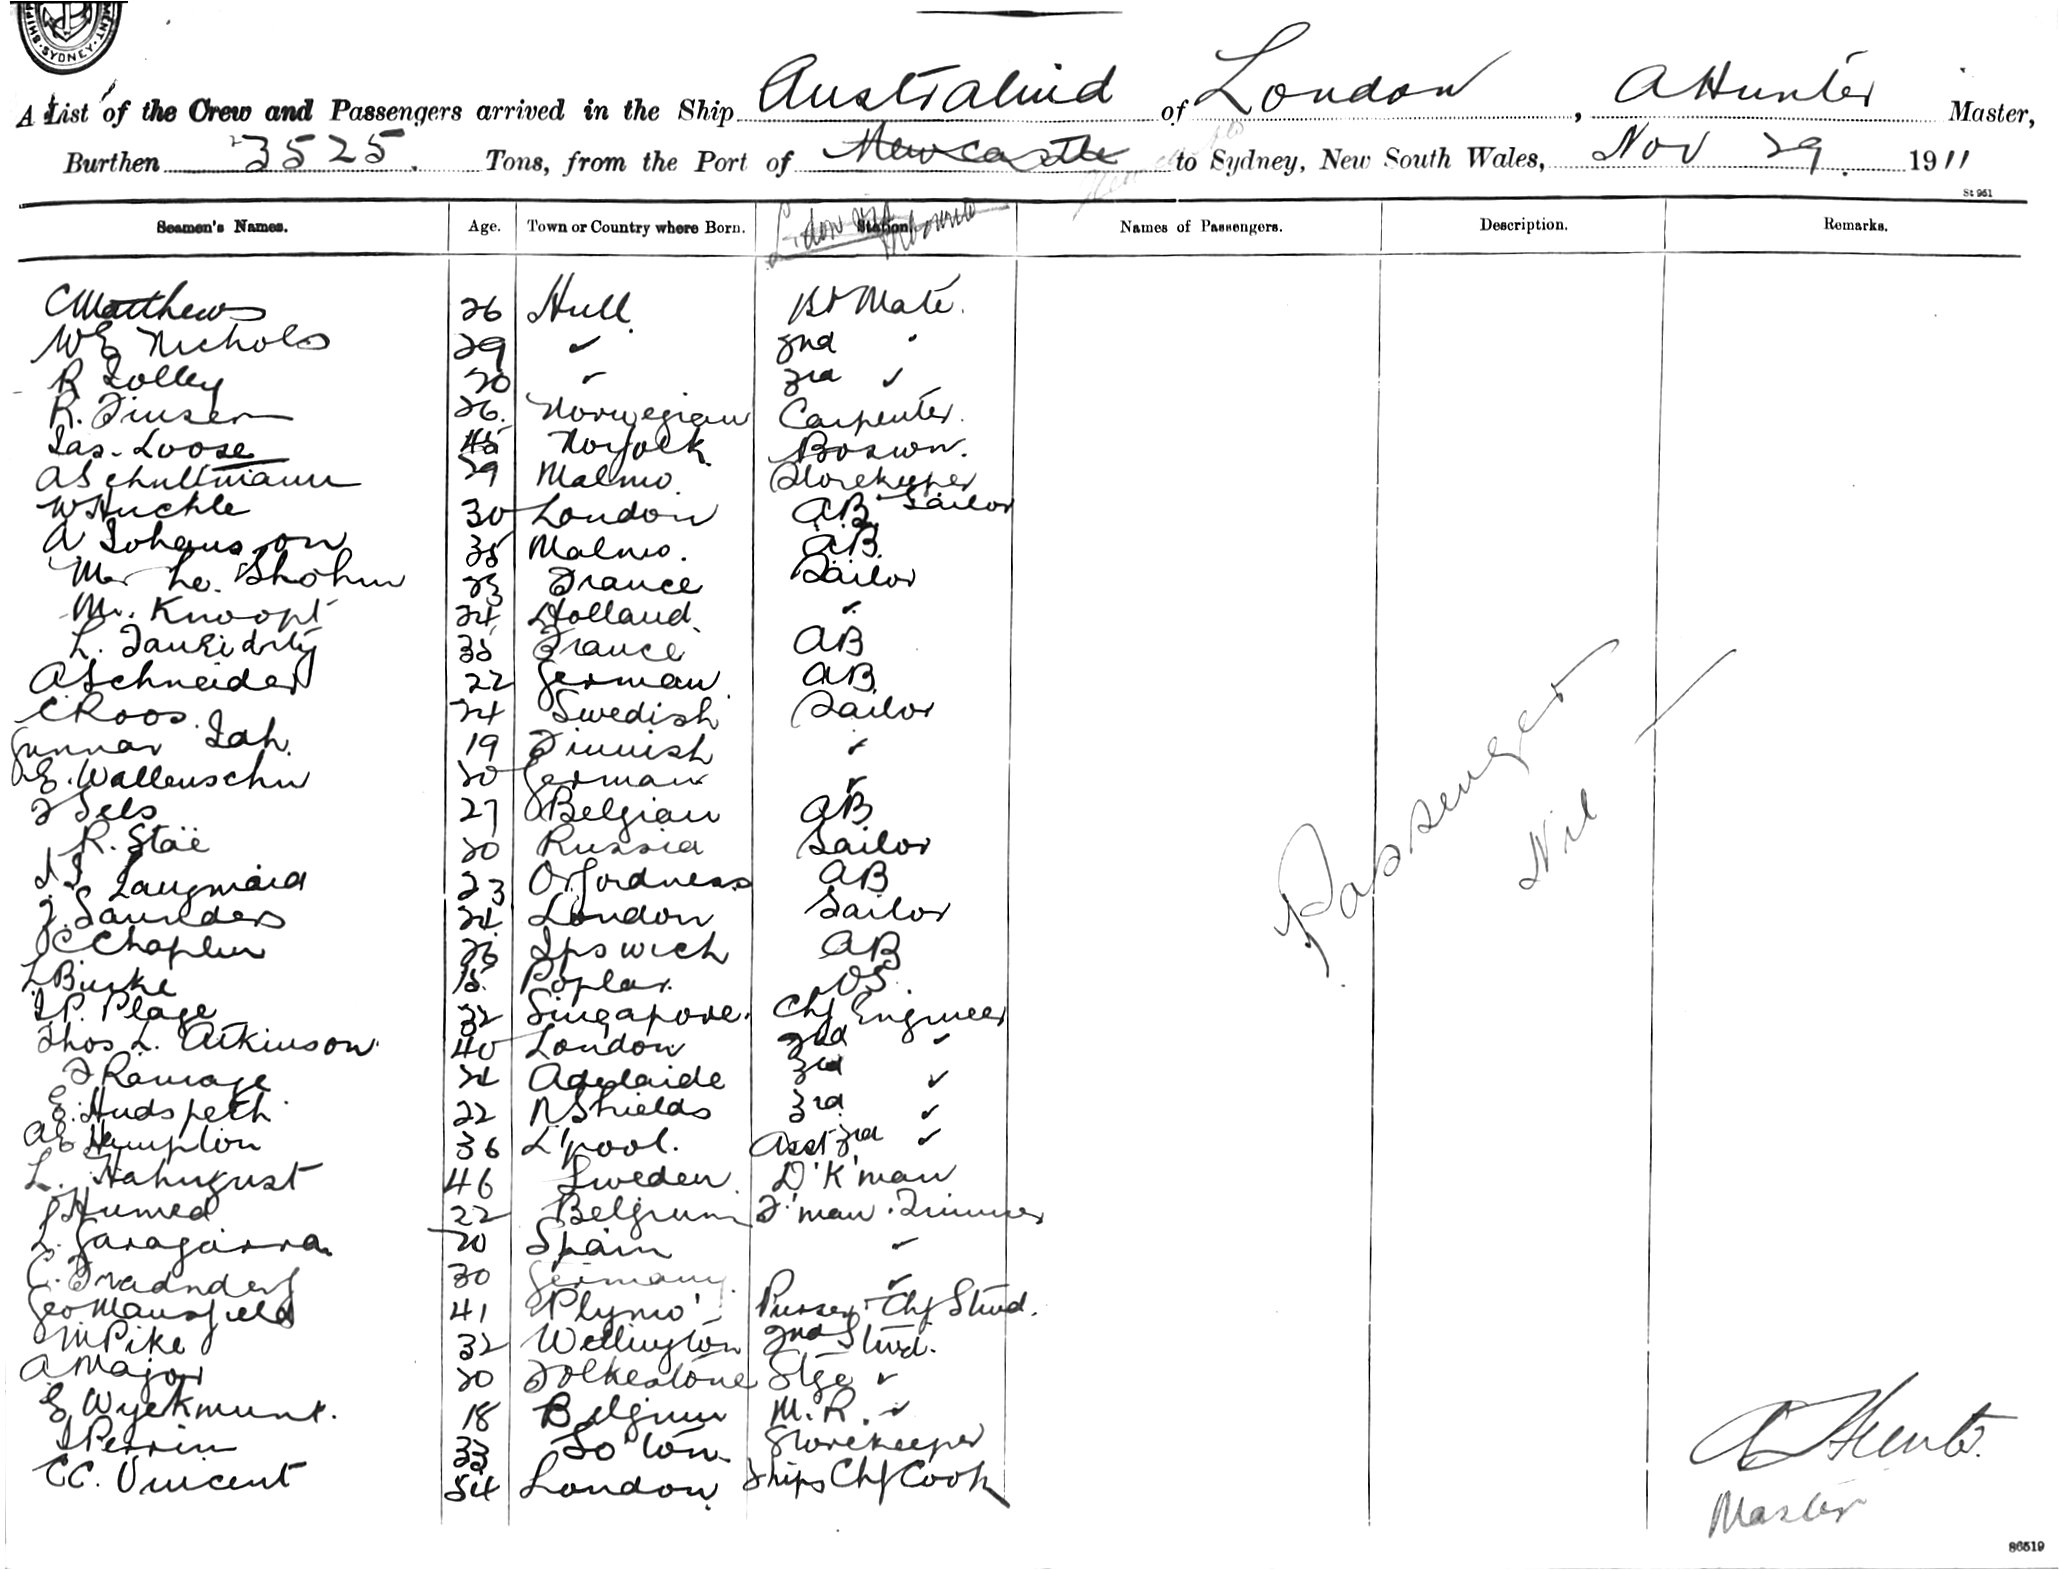 SHIPP MENT. SYDNEY.
A List of the Crew and Passengers arrived in the Ship Australind of London, A Hunter Master,
Burthen 3525. Tons, from the Port of Newcastle to Sydney, New South Wales, Nov 29. 1911
St 951
Seamen's Names. Age. Town or Country where Born. Station. Names of Passengers. Description. Remarks.
C Matthews 26 Hull. Mate.
W E Nichols 29 ✓ 2nd
R Jolley 20 ✓ 3rd ✓
R. Finsen 26. Norwegian Carpenter.
Jas. Loose 45 Norfolk. Boswn.
A Schultmann 29 Malmo. Storekeeper
W Huckle 30 London AB Sailor
A Johansson 35 Malmo. AB.
23 France Sailor
Mr. Knoopt 24 Holland. ✓
L. 35 France AB
A Schneider 22 German AB
C Roos. 24 Swedish Sailor
Gunnar Jah. 19 Finnish ✓
E. Wallenschn 20 German ✓
F Sels 27 Belgian AB
R. Staë 20 Russia Sailor
Langmaid 23 Orfordness AB
F. Saunders 24 London Sailor
C Chaplin 26 Ipswich AB
L Burke 18. Poplar. OS.
J P. Plage 32 Singapore. Chf Engineer
Thos L. Atkinson. 40 London 2nd ✓
F Ramage 24 Adelaide 3rd ✓
E. Hudspeth. 22 N Shields 3rd ✓
A E Hampton 36 L'pool. Asst 3rd ✓
L. Hahngust 46 Sweden. D'K'man
J Humed 22 Belgium F'man. Trimmer
L. Garagarra. 20 Spain ✓
C. 30 Germany. ✓
Geo Mansfield 41 Plymo' Purser & Chf Stwd.
M Pike 32 Wellington 2nd Stwd.
A. Major 20 Folkestone Stge ✓
E Wyckmunt. 18 Belgium M. R. ✓
J Perrin 33 So'ton. Storekeeper
C C. Vincent 54 London. Ships Chf Cook
Passengers
Nil
A Hunter.
Master
86519